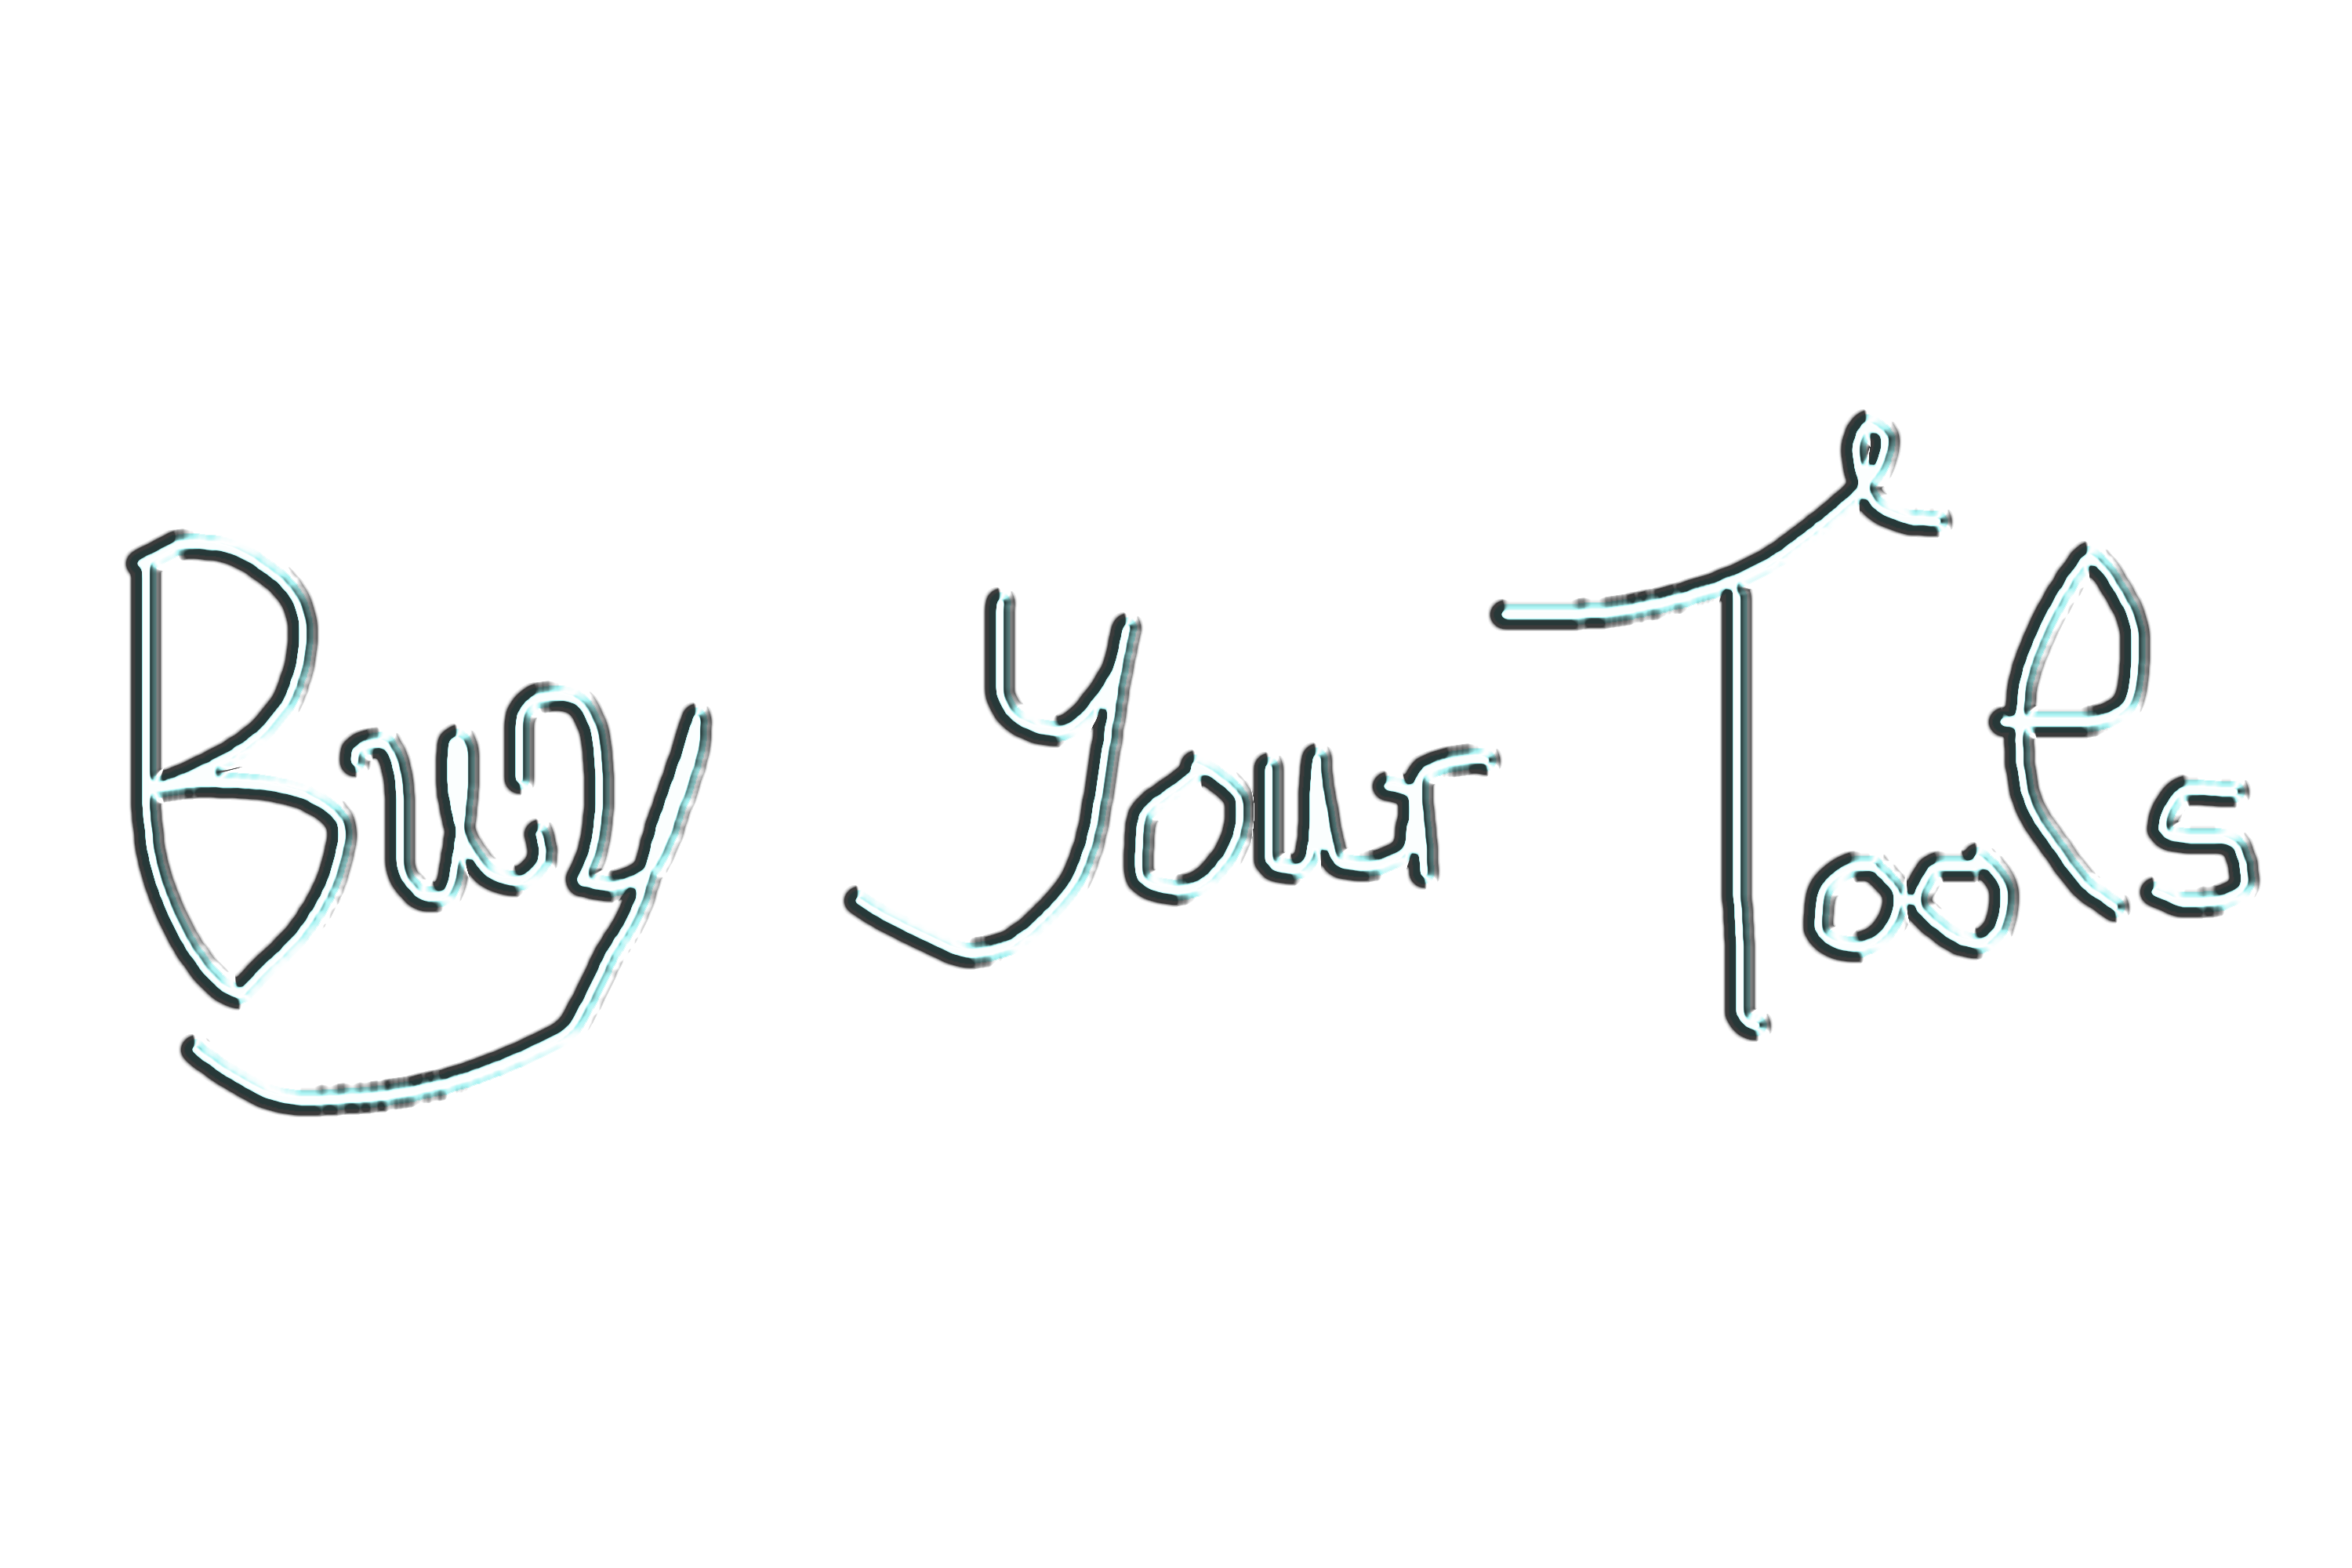 Buy Your Tools